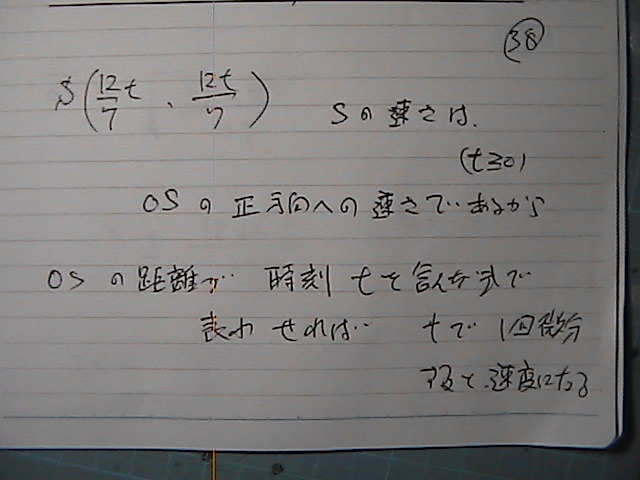 38
S(12/7 t 、 12t/7) Sの速さは、
(t≧0)
OSの正方向への速さであるから
OSの距離が 時刻 tを含んだ式で
表わせれば tで1回微分
すると、速度になる